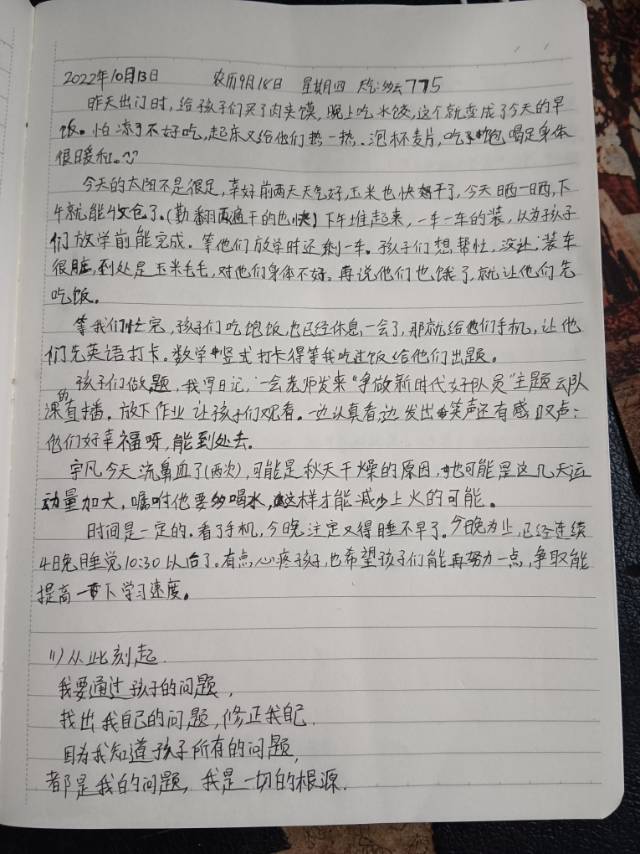 2022年10月13日 农历9月18日 星期四 天气:多云 775
昨天出门时,给孩子们买了肉夹馍,晚上吃水饺,这个就变成了今天的早
饭。怕凉了不好吃,起床又给他们热一热。泡杯麦片,吃饱喝足身体
很暖和。
今天的太阳不是很足,幸好前两天天气好,玉米也快晒干了,今天晒一晒,下
午就能收仓了。(勤翻两遍干的也快)下午堆起来,一车一车的装,以为孩子
们放学前能完成。等他们放学时还剩一车。孩子们想帮忙,没让,装车
很脏,到处是玉米毛毛,对他们身体不好。再说他们也饿了,就让他们先
吃饭。
等我们忙完,孩子们吃饱饭也已经休息一会了,那就给他们手机,让他
们先英语打卡。数学竖式打卡得等我吃过饭给他们出题。
孩子们做题,我写日记,一会老师发来“争做新时代好队员”主题云队
课的直播。放下作业让孩子们观看。一边认真看边发出笑声还有感叹点:
他们好幸福呀,能到处去。
宇凡今天流鼻血了(两次),可能是秋天干燥的原因,也可能是这几天运
动量加大,嘱咐他要多喝水,这样才能减少上火的可能。
时间是一定的。看了手机,今晚注定又得睡不早了。今晚为止,已经连续
4晚睡觉10:30以后了。有点心疼孩子,也希望孩子们能再努力一点,争取能
提高一下学习速度。
(1)从此刻起.
我要通过孩子的问题,
找出我自己的问题,修正我自己.
因为我知道孩子所有的问题,
都是我的问题,我是一切的根源.